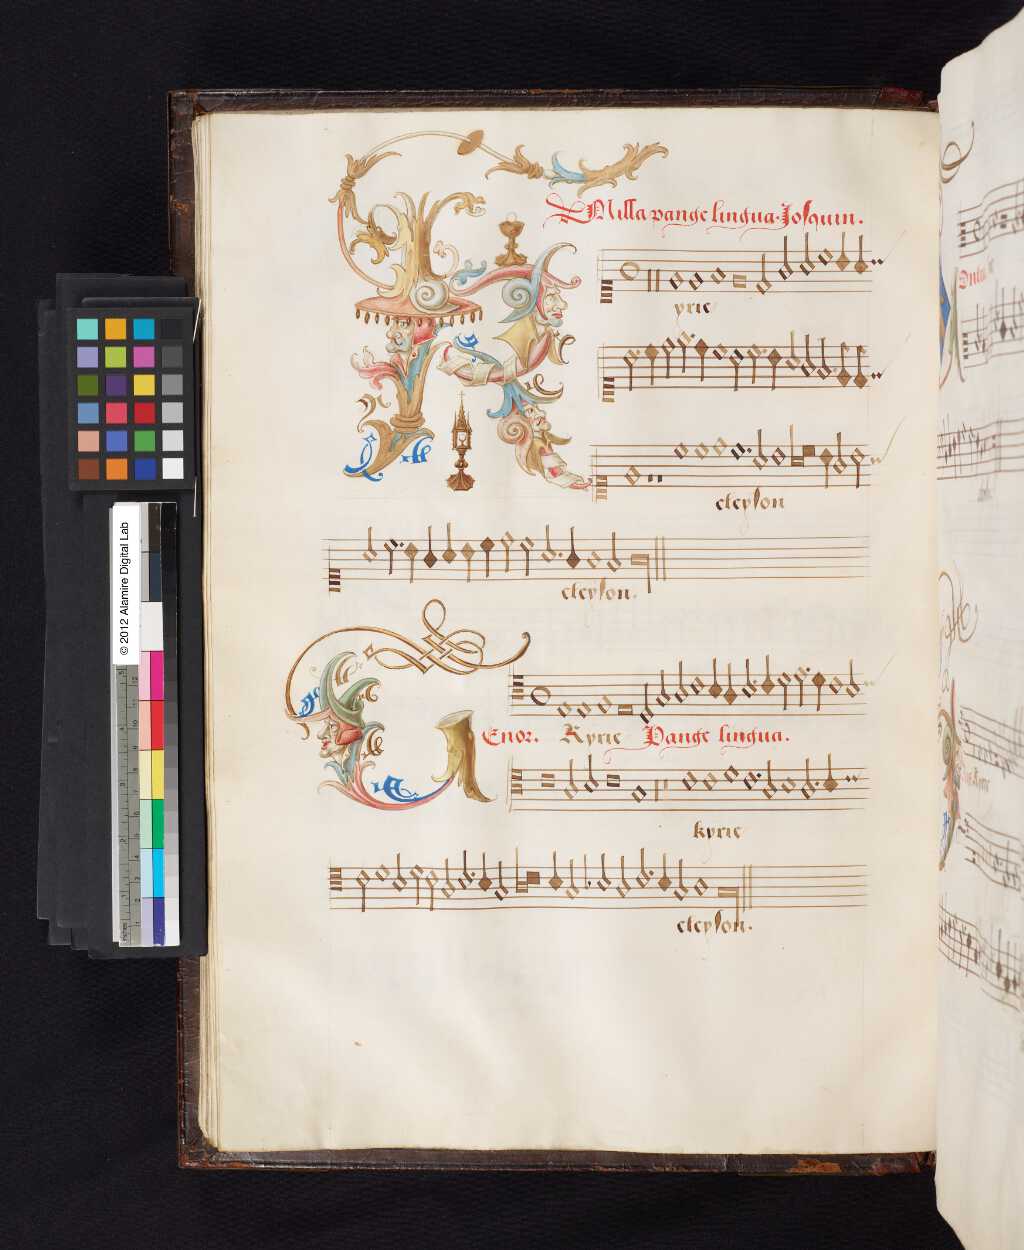 Missa pange lingua. Josquin.
yrie
eleyson
eleyson.
Enor. Kyrie Pange lingua.
kyrie
eleyson.
© 2012 Alamire Digital Lab